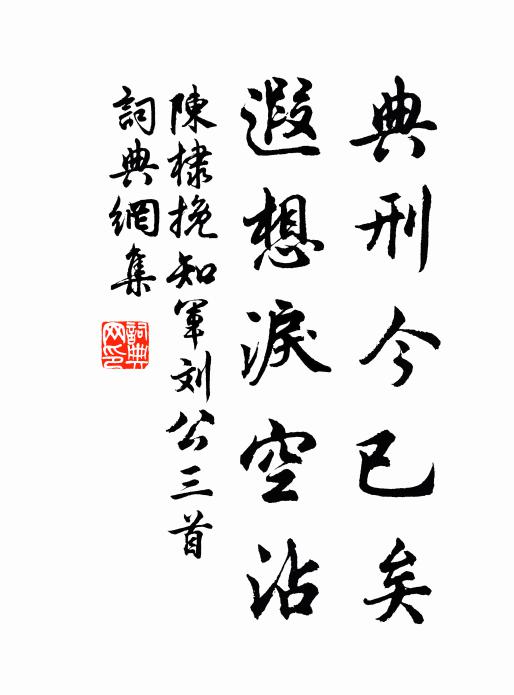 典刑今已矣
遐想淚空沾
陳棣挽知軍刘公三首
詞典網集
詞典網印